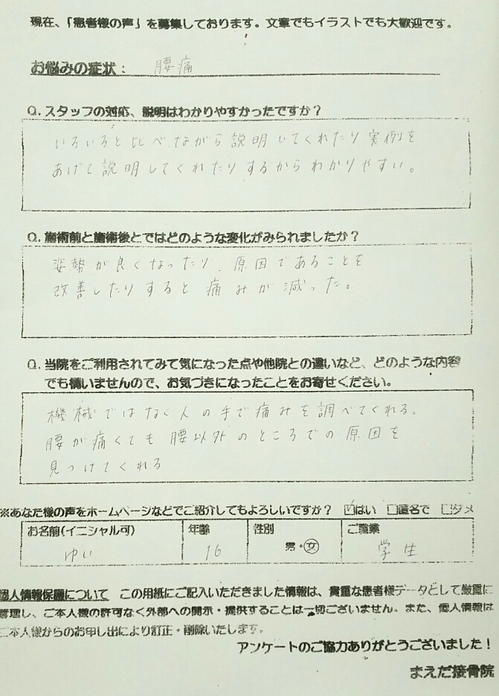 現在、「患者様の声」を募集しております。文章でもイラストでも大歓迎です。
お悩みの症状： 腰痛
Q. スタッフの対応、説明はわかりやすかったですか？
いろいろと比べながら説明してくれたり実例を
あげて説明してくれたりするからわかりやすい。
Q. 施術前と施術後とではどのような変化がみられましたか？
姿勢が良くなったり、原因であることを
改善したりすると痛みが減った。
Q. 当院をご利用されてみて気になった点や他院との違いなど、どのような内容
でも構いませんので、お気づきになったことをお寄せください。
機械ではなく人の手で痛みを調べてくれる。
腰が痛くても腰以外のところでの原因を
見つけてくれる
※あなた様の声をホームページなどでご紹介してもよろしいですか？ ☑はい □匿名で □ダメ
お名前(イニシャル可) 年齢 性別 ご職業
ゆい 16 男・女 学生
個人情報保護について この用紙にご記入いただきました情報は、貴重な患者様データとして厳重に
管理し、ご本人様の許可なく外部への開示・提供することは一切ございません。また、個人情報は
ご本人様からのお申し出により訂正・削除いたします。
アンケートのご協力ありがとうございました！
まえだ接骨院